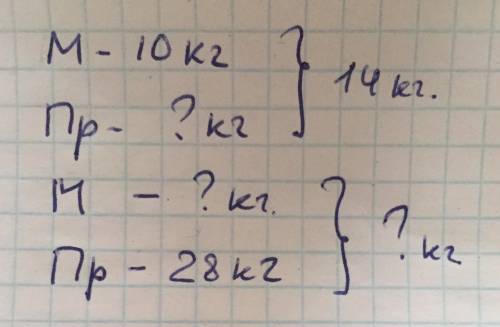 М - 10 кг } 14 кг.
Пр - ? кг
М - ? кг. } ? кг
Пр - 28 кг